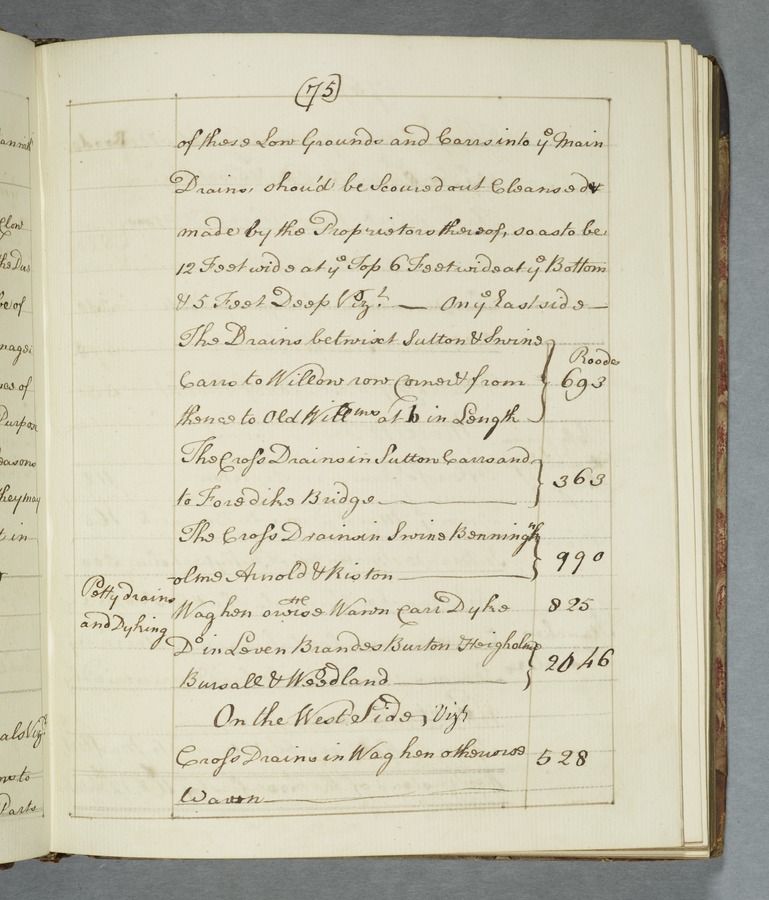 (75)
of these Low Grounds and Carrs into ye Main
Drains, shou'd be Scoured out Cleansed &
made by the Proprietors thereof, so as to be
12 Feet wide at ye Top 6 Feet wide at ye Bottom
& 5 Feet Deep Vizt. — On ye East side —
The Drains betwixt Sutton & Swine
Carrs to Willow row Corner & from
thence to Old at in Length
Roods
693
The Cross Drains in Sutton Carrs and
to Foredike Bridge
363
The Cross Drains in Swine Benningh
olme Arnold & Riston
990
Petty drains
and Dyking
Waghen orwise Wawn Carr Dyke 825
Do in Leven Brandes Burton Heigholme
Bursall & Weedland
2046
On the West Side, Vizt
Cross Drains in Waghen otherwise 528
Wawn